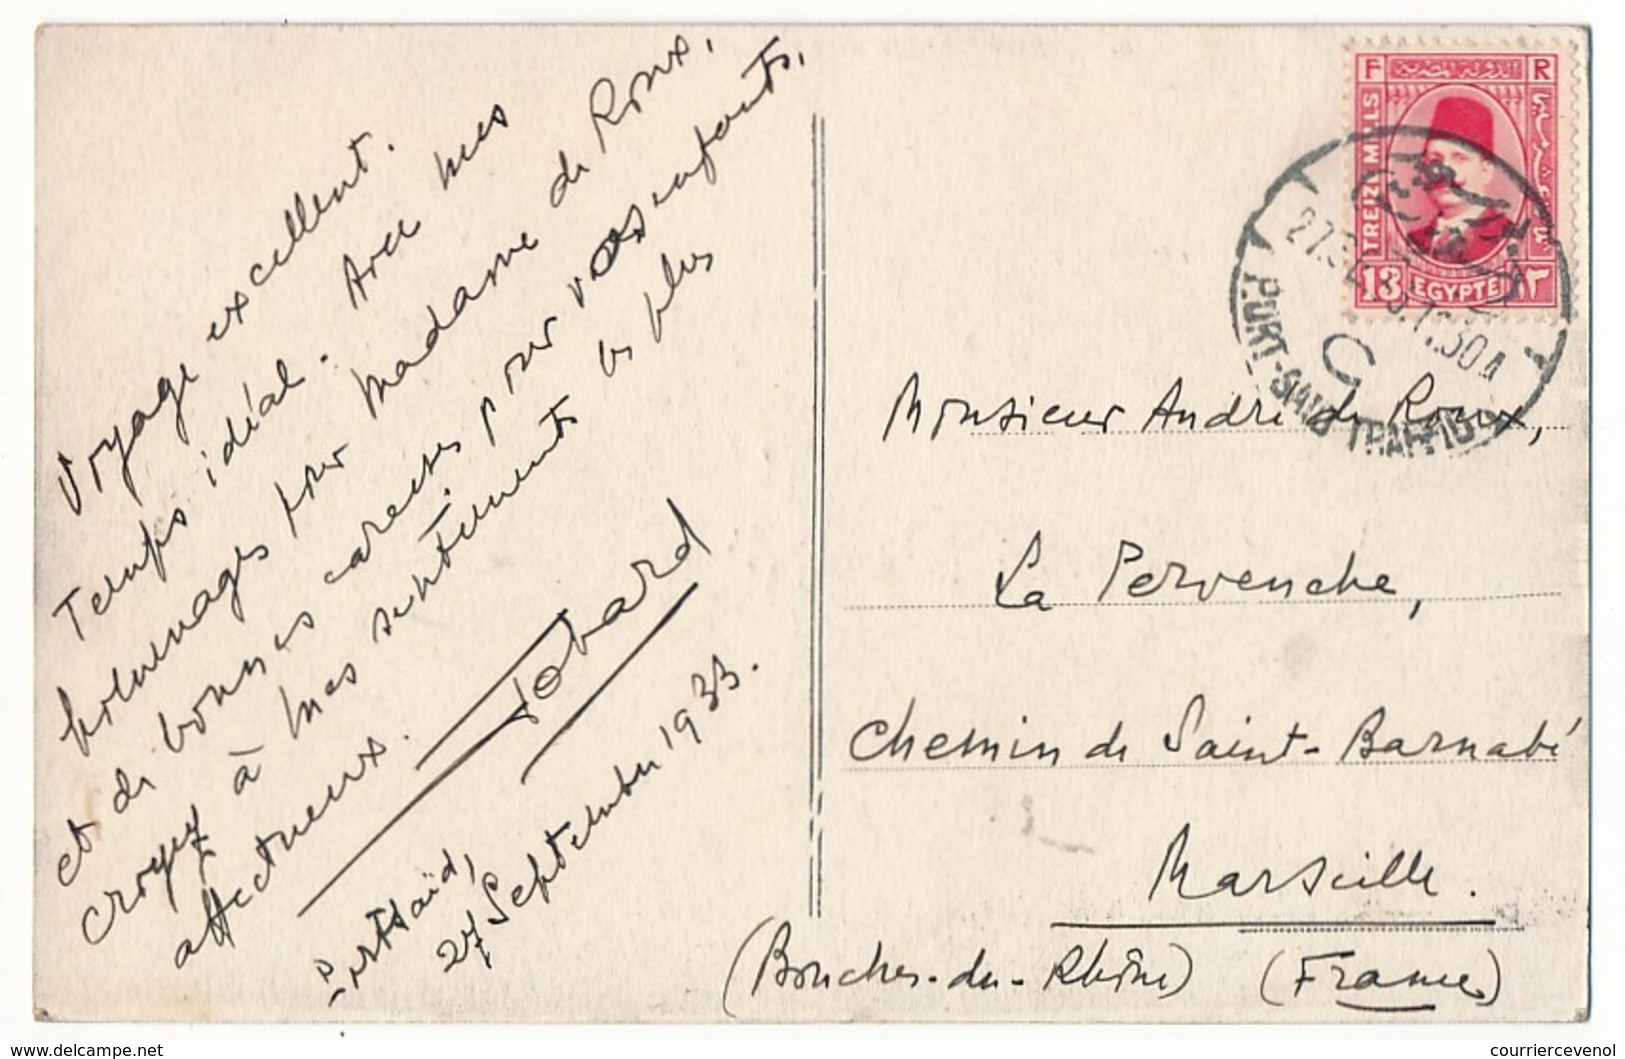 Voyage excellent.
Temps idéal. Avec mes
hommages pour Madame de Roux,
et de bonnes caresses pour vos enfants,
croyez à mes sentiments les plus
affectueux.
Jobard
Port Saïd,
27 Septembre 1933.
F R
TREIZE MILLS
13 EGYPTE ١٣
PORT-SAID TRAFFIC
Monsieur André de Roux,
La Pervenche,
Chemin de Saint-Barnabé
Marseille.
(Bouches-du-Rhône) (France)
www.delcampe.net
courriercevenol